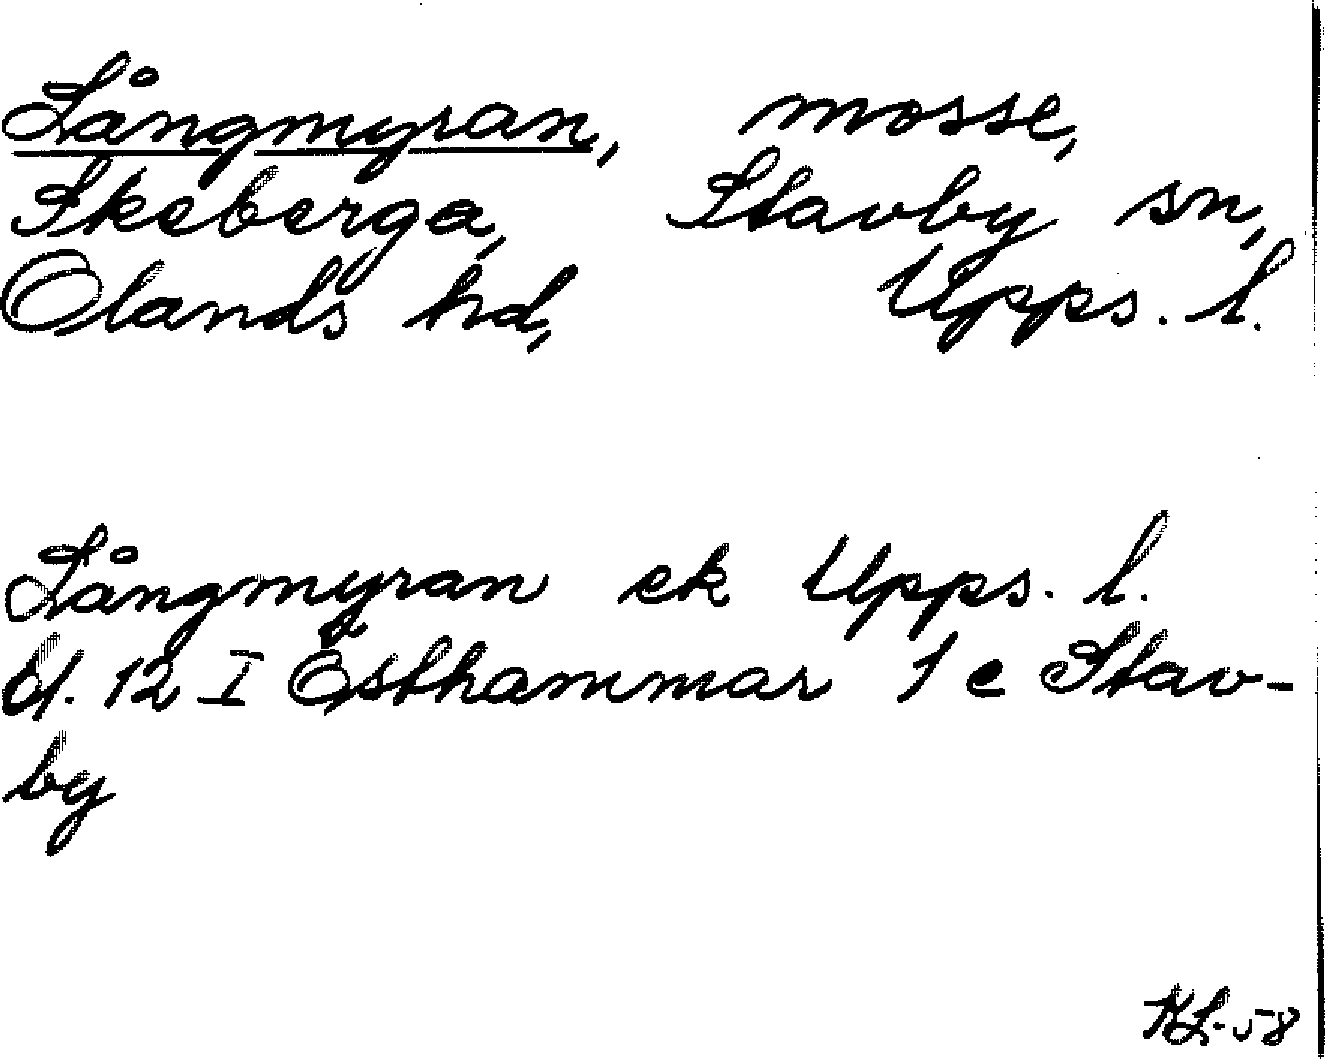 Långmyran, mosse,
Skeberga, Stavby sn,
Olands hd, Upps. l.
Långmyran ek Upps. l.
bl. 12 I Östhammar 1 e Stav-
by
KL-58